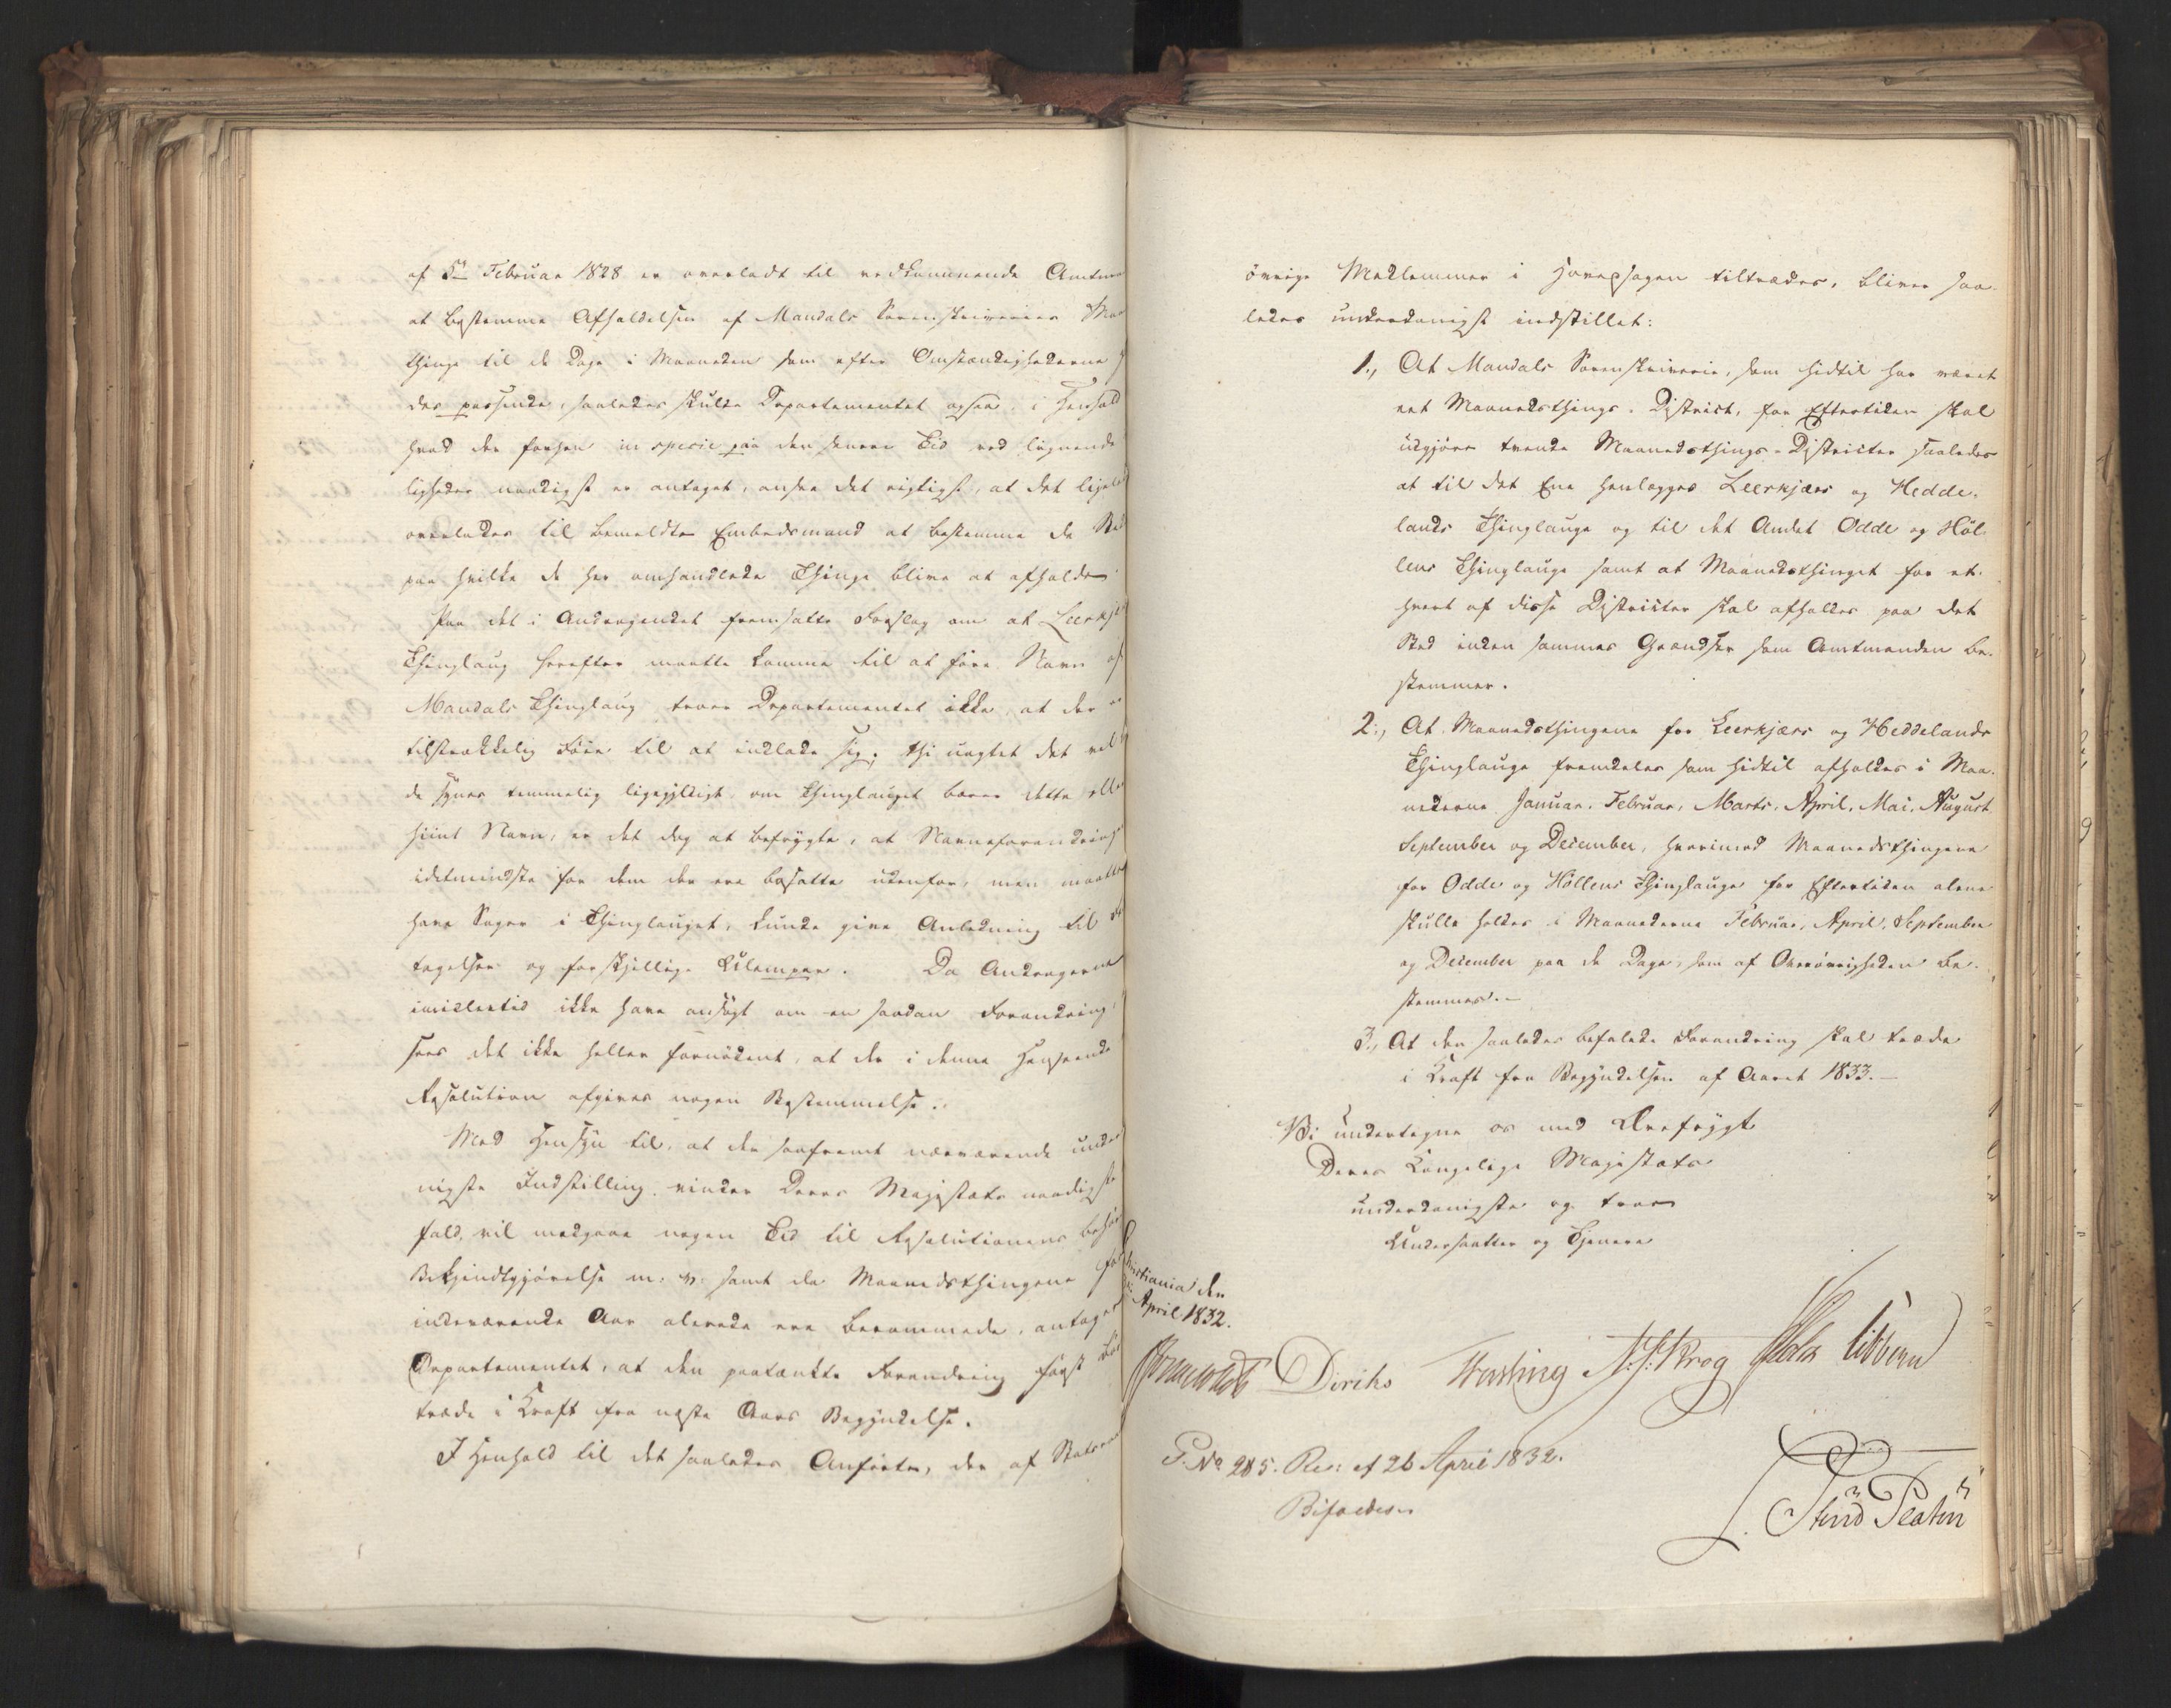 af 5te Februar 1828 er overladt til vedkommende Amtm
at bestemme Afholdelsen af Mandals Sorenskriveries Maa
thinge til de Dage i Maaneden som efter Omstændighederne
des passende, saaledes skulde Departementet ogsaa, i Henhold
hvad der forhen in specie paa den senere Tid ved lignende
ligheder naadigst er antaget, ansee det rigtigst, at det ligele
overlades til bemeldte Embedsmand at bestemme de Ste
paa hvilke de her omhandlede Thinge blive at afholde.
Paa det i Andragendet fremsatte Forslag om at Leerkjæ
Thinglaug herefter maatte komme til at føre Navn af
Mandals Thinglaug troer Departementet ikke, at der er
tilstrækkelig Føie til at indlade sig; thi uagtet det vel
de synes temmelig ligegyldigt om Thinglauget bærer dette eller
hiint Navn, er det dog at befrygte, at Navneforandring
idetmindste for dem der ere bosatte udenfor, men maatte
have Sager i Thinglauget, kunde give Anledning til
tagelser og forskjellige Ulemper. Da Andragerne
imidlertid ikke have ansøgt om en saadan Forandring,
sees det ikke heller fornødent, at der i denne Henseende
Resolution afgives nogen Bestemmelse.
Med Hensyn til, at der saafremt nærværende unde
nigste Indstilling vinder Deres Majestæts naadigste
fald, vil medgaae nogen Tid til Resolutionens behør
Bekjendtgjørelse m. v. samt da Maanedsthingene for
indeværende Aar allerede ere berammede, antager
Departementet, at den paatænkte Forandring først bør
træde i Kraft fra næste Aars Begyndelse.
I Henhold til det saaledes Anførte, der af Statsraa
øvrige Medlemmer i Hovedsagen tiltrædes, bliver saa-
ledes underdanigst indstillet:
1., At Mandals Sorenskriverie, som hidtil har været
eet Maanedsthings-District, for Eftertiden skal
udgjøre tvende Maanedsthings-Districter saaledes
at til det Ene henlægges Leerkjærs og Hedde-
lands Thinglauge og til det Andet Odde og Höl-
lens Thinglauge samt at Maanedsthinget for et-
hvert af disse Districter skal afholdes paa det
Sted inden sammes Grændser som Amtmanden be-
stemmer.
2., At Maanedsthingene for Leerkjærs og Heddelands
Thinglauge fremdeles som hidtil afholdes i Maa-
nederne Januar, Februar, Marts, April, Mai, August
September og December, hvorimod Maanedsthingene
for Odde og Höllens Thinglauge for Eftertiden alene
skulle holdes i Maanederne Februar, April, September
og December paa de Dage, som af Overøvrigheden be-
stemmes.-
3., At den saaledes befalede Forandring skal træde
i Kraft fra Begyndelsen af Aaret 1833.-
Vi undertegne os med Ærefrygt
Deres Kongelige Majestæts
underdanigste og troe
Undersaatter og Tjenere
Christiania den
April 1832.
Diriks Fasting N. J. Krog Holst Sibbern
P. No 285. Res: af 26 April 1832.
Bifaldes